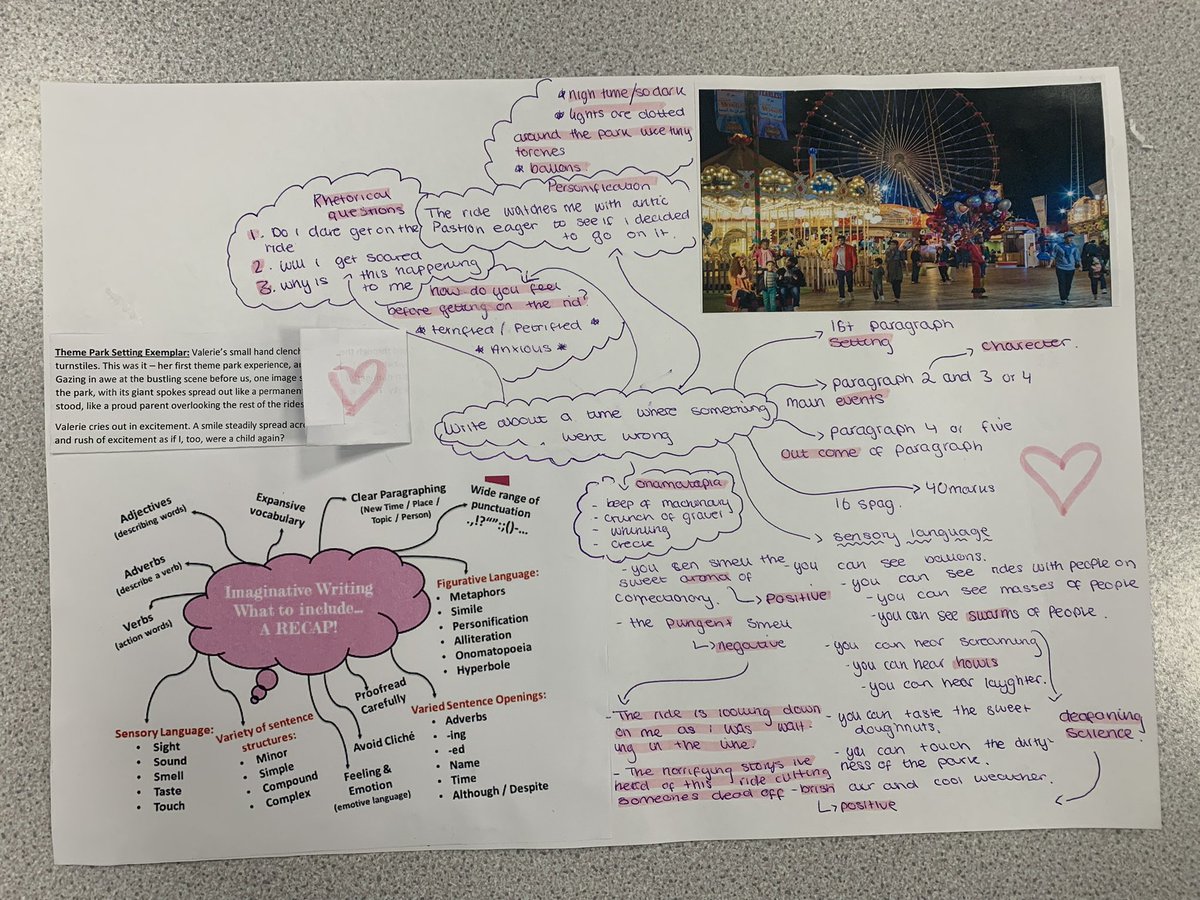 * nigh time/so dark
* lights are dotted
around the park like tiny
torches
* ballons
Personification
The ride watches me with antic
Pastion eager to see if i decided
to go on it.
Rhetorical
questions
1. Do i dare get on the
ride
2. will i get scared
3. why is this happening
to me
how do you feel
before getting on the rid?
* terrified / Petrified *
* Anxious *
Theme Park Setting Exemplar: Valerie's small hand clench
turnstiles. This was it – her first theme park experience, a
Gazing in awe at the bustling scene before us, one image
the park, with its giant spokes spread out like a permanen
stood, like a proud parent overlooking the rest of the rides
Valerie cries out in excitement. A smile steadily spread acr
and rush of excitement as if I, too, were a child again?
Write about a time where something
went wrong
1st Paragraph
Setting
character.
paragraph 2 and 3 or 4
main events
paragraph 4 or five
out come of paragraph
40marks
16 spag.
onamatapia
- beep of machonary
- crunch of gravel
- whirling
- crecie
sensory language
- you sen smell the
sweet aroma of
confectionary.
positive
- the pungent smell
negative
- you can see ballons.
- you can see rides with people on
- you can see masses of people
- you can see swarms of people.
- you can hear screaming
- you can hear howls
- you can hear laughter.
deafaning
scilence.
- you can taste the sweet
doughnuts.
- you can touch the dirty-
ness of the park.
- brish air and cool weather.
positive
- The ride is looking down
on me as i was wait-
ing in the line.
- The horrifying storys ive
herd of this ride cutting
someones head off
Imaginative Writing
What to include...
A RECAP!
Adjectives
(describing words)
Expansive
vocabulary
Clear Paragraphing
(New Time / Place /
Topic / Person)
Wide range of
punctuation
.,!?“”:;()-...
Adverbs
(describe a verb)
Verbs
(action words)
Figurative Language:
• Metaphors
• Simile
• Personification
• Alliteration
• Onomatopoeia
• Hyperbole
Sensory Language:
• Sight
• Sound
• Smell
• Taste
• Touch
Variety of sentence
structures:
• Minor
• Simple
• Compound
• Complex
Feeling &
Emotion
(emotive language)
Avoid Cliché
Proofread
Carefully
Varied Sentence Openings:
• Adverbs
• -ing
• -ed
• Name
• Time
• Although / Despite